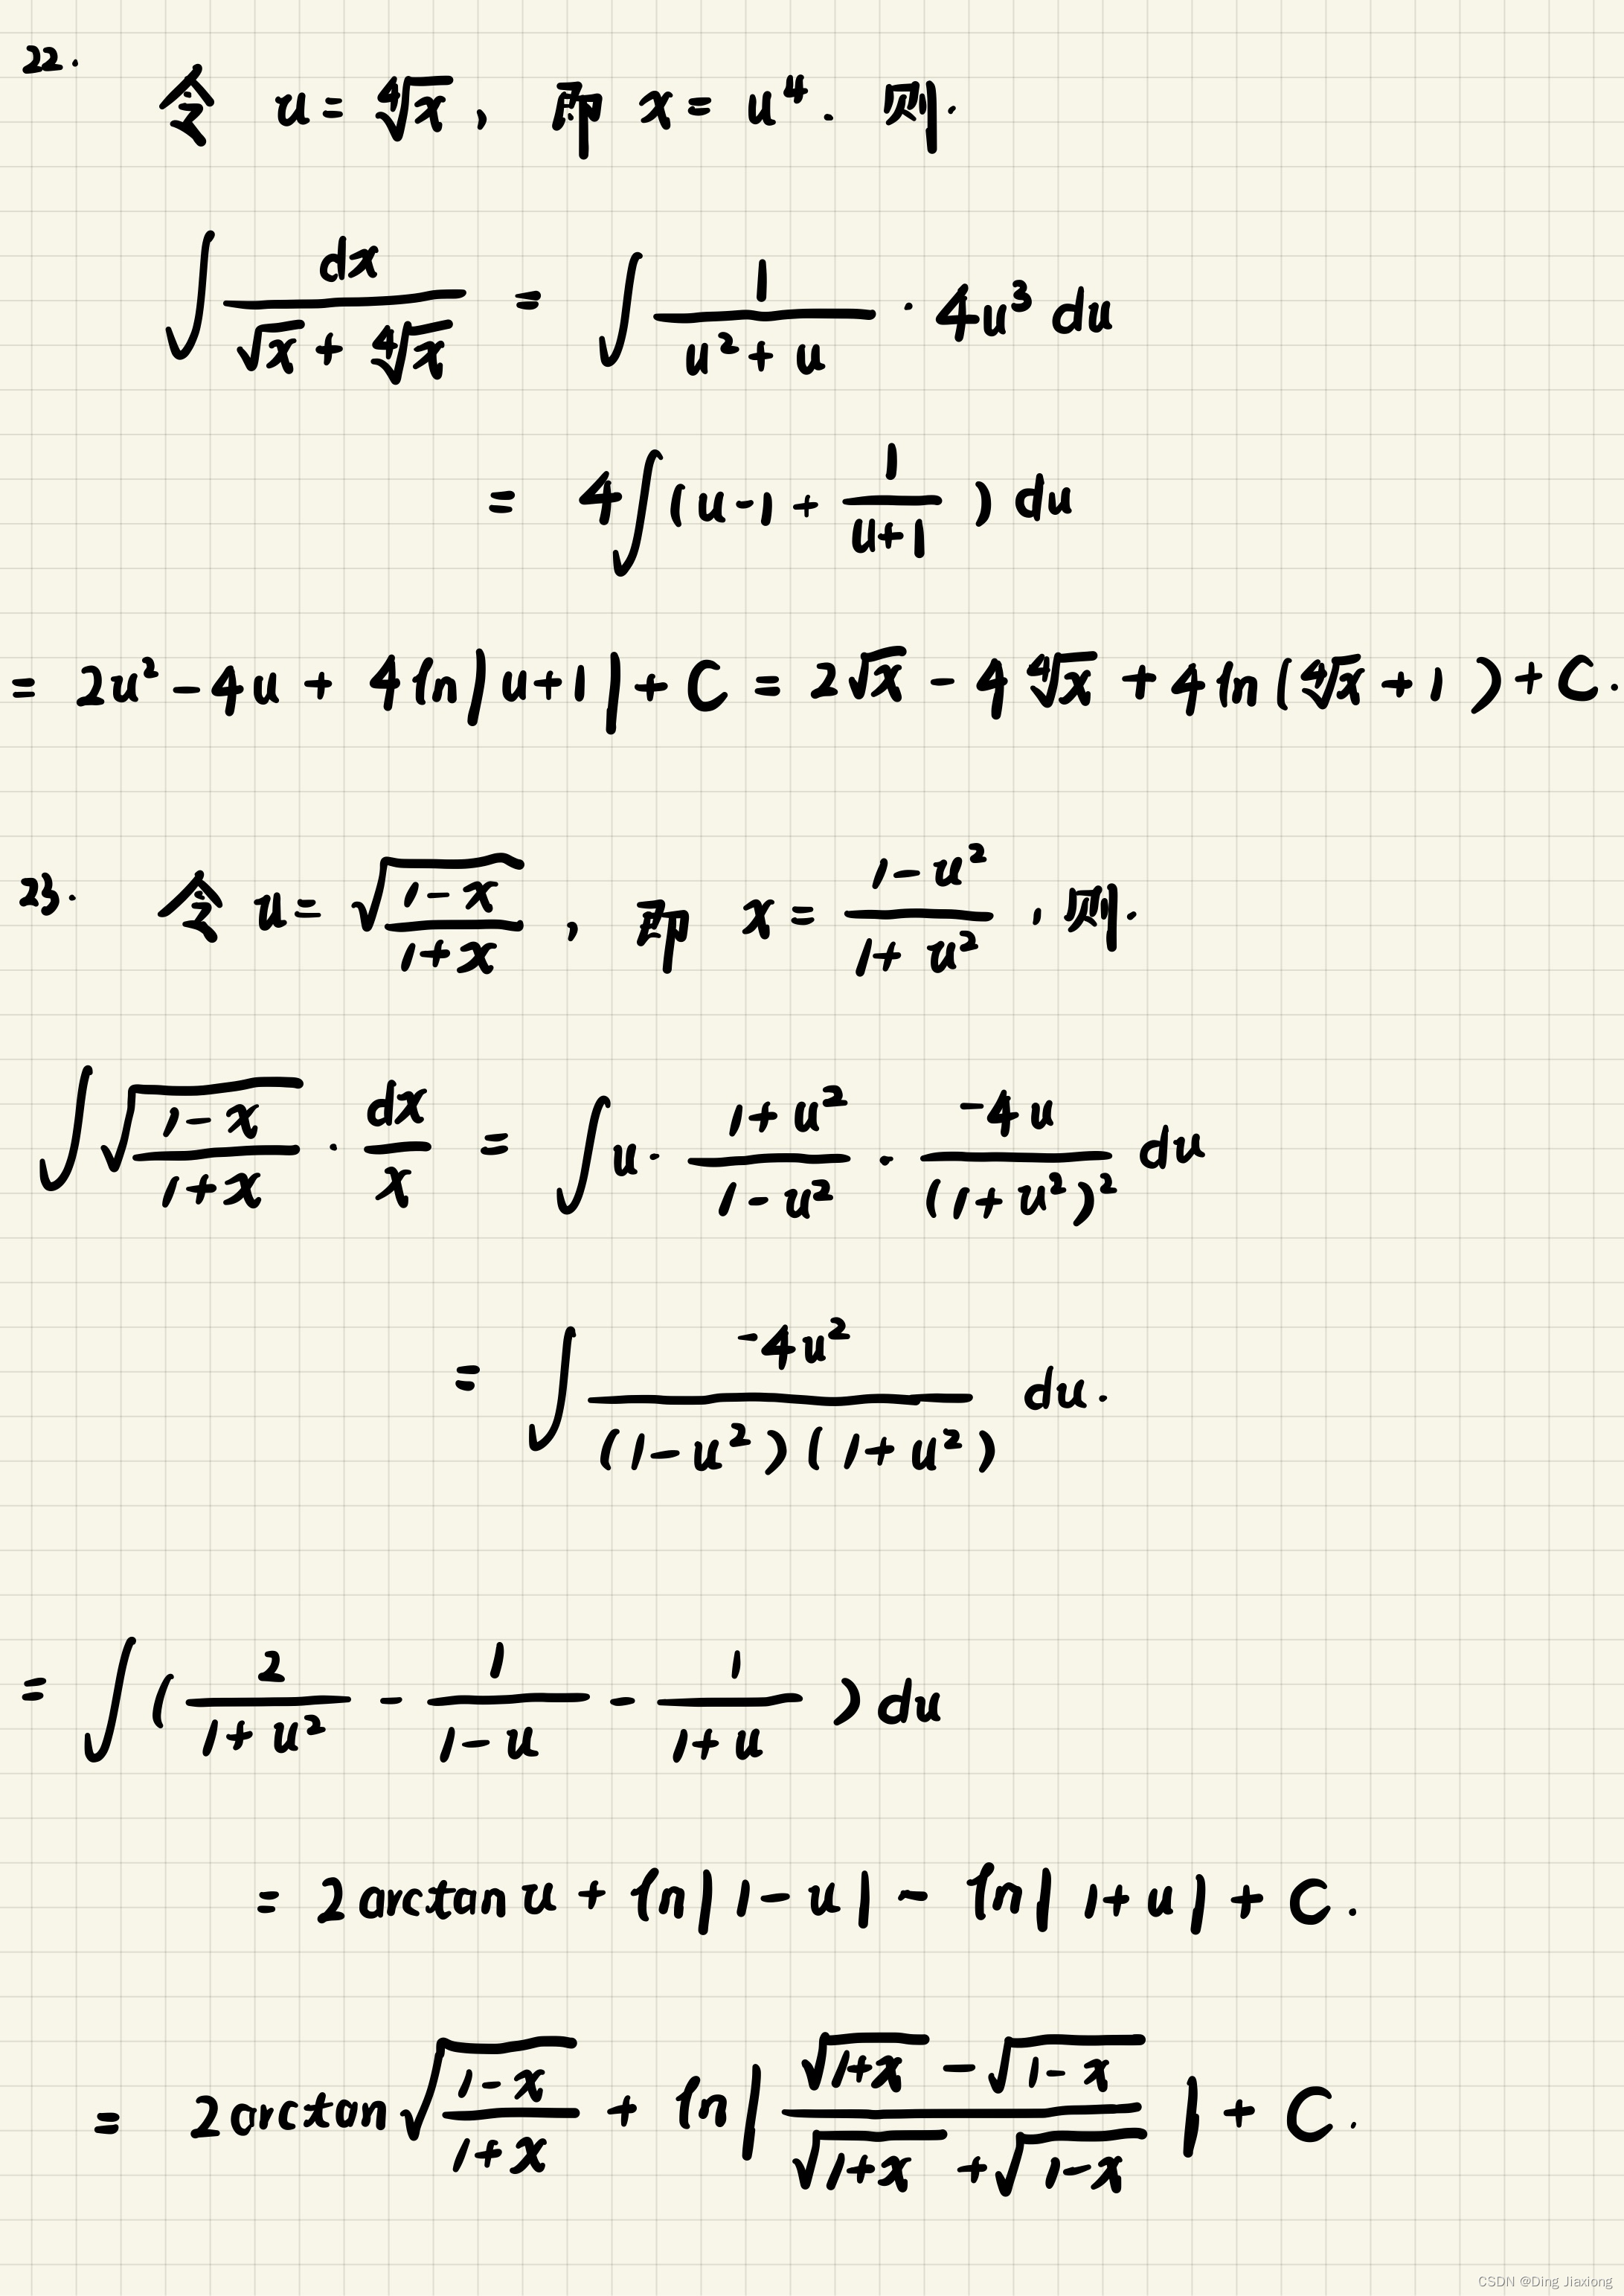 22. 令 u = ∜x, 即 x = u⁴. 则.
∫ dx/(√x + ∜x) = ∫ 1/(u² + u) · 4u³ du
= 4∫(u-1 + 1/(u+1)) du
= 2u² - 4u + 4ln|u+1| + C = 2√x - 4∜x + 4ln(∜x + 1) + C.
23. 令 u = √((1-x)/(1+x)), 即 x = (1-u²)/(1+u²), 则.
∫ √((1-x)/(1+x)) · dx/x = ∫ u · (1+u²)/(1-u²) · (-4u)/(1+u²)² du
= ∫ -4u²/((1-u²)(1+u²)) du.
= ∫ (2/(1+u²) - 1/(1-u) - 1/(1+u)) du
= 2arctan u + ln|1-u| - ln|1+u| + C.
= 2arctan √((1-x)/(1+x)) + ln|(√(1+x) - √(1-x))/(√(1+x) + √(1-x))| + C.
CSDN @Ding Jiaxiong